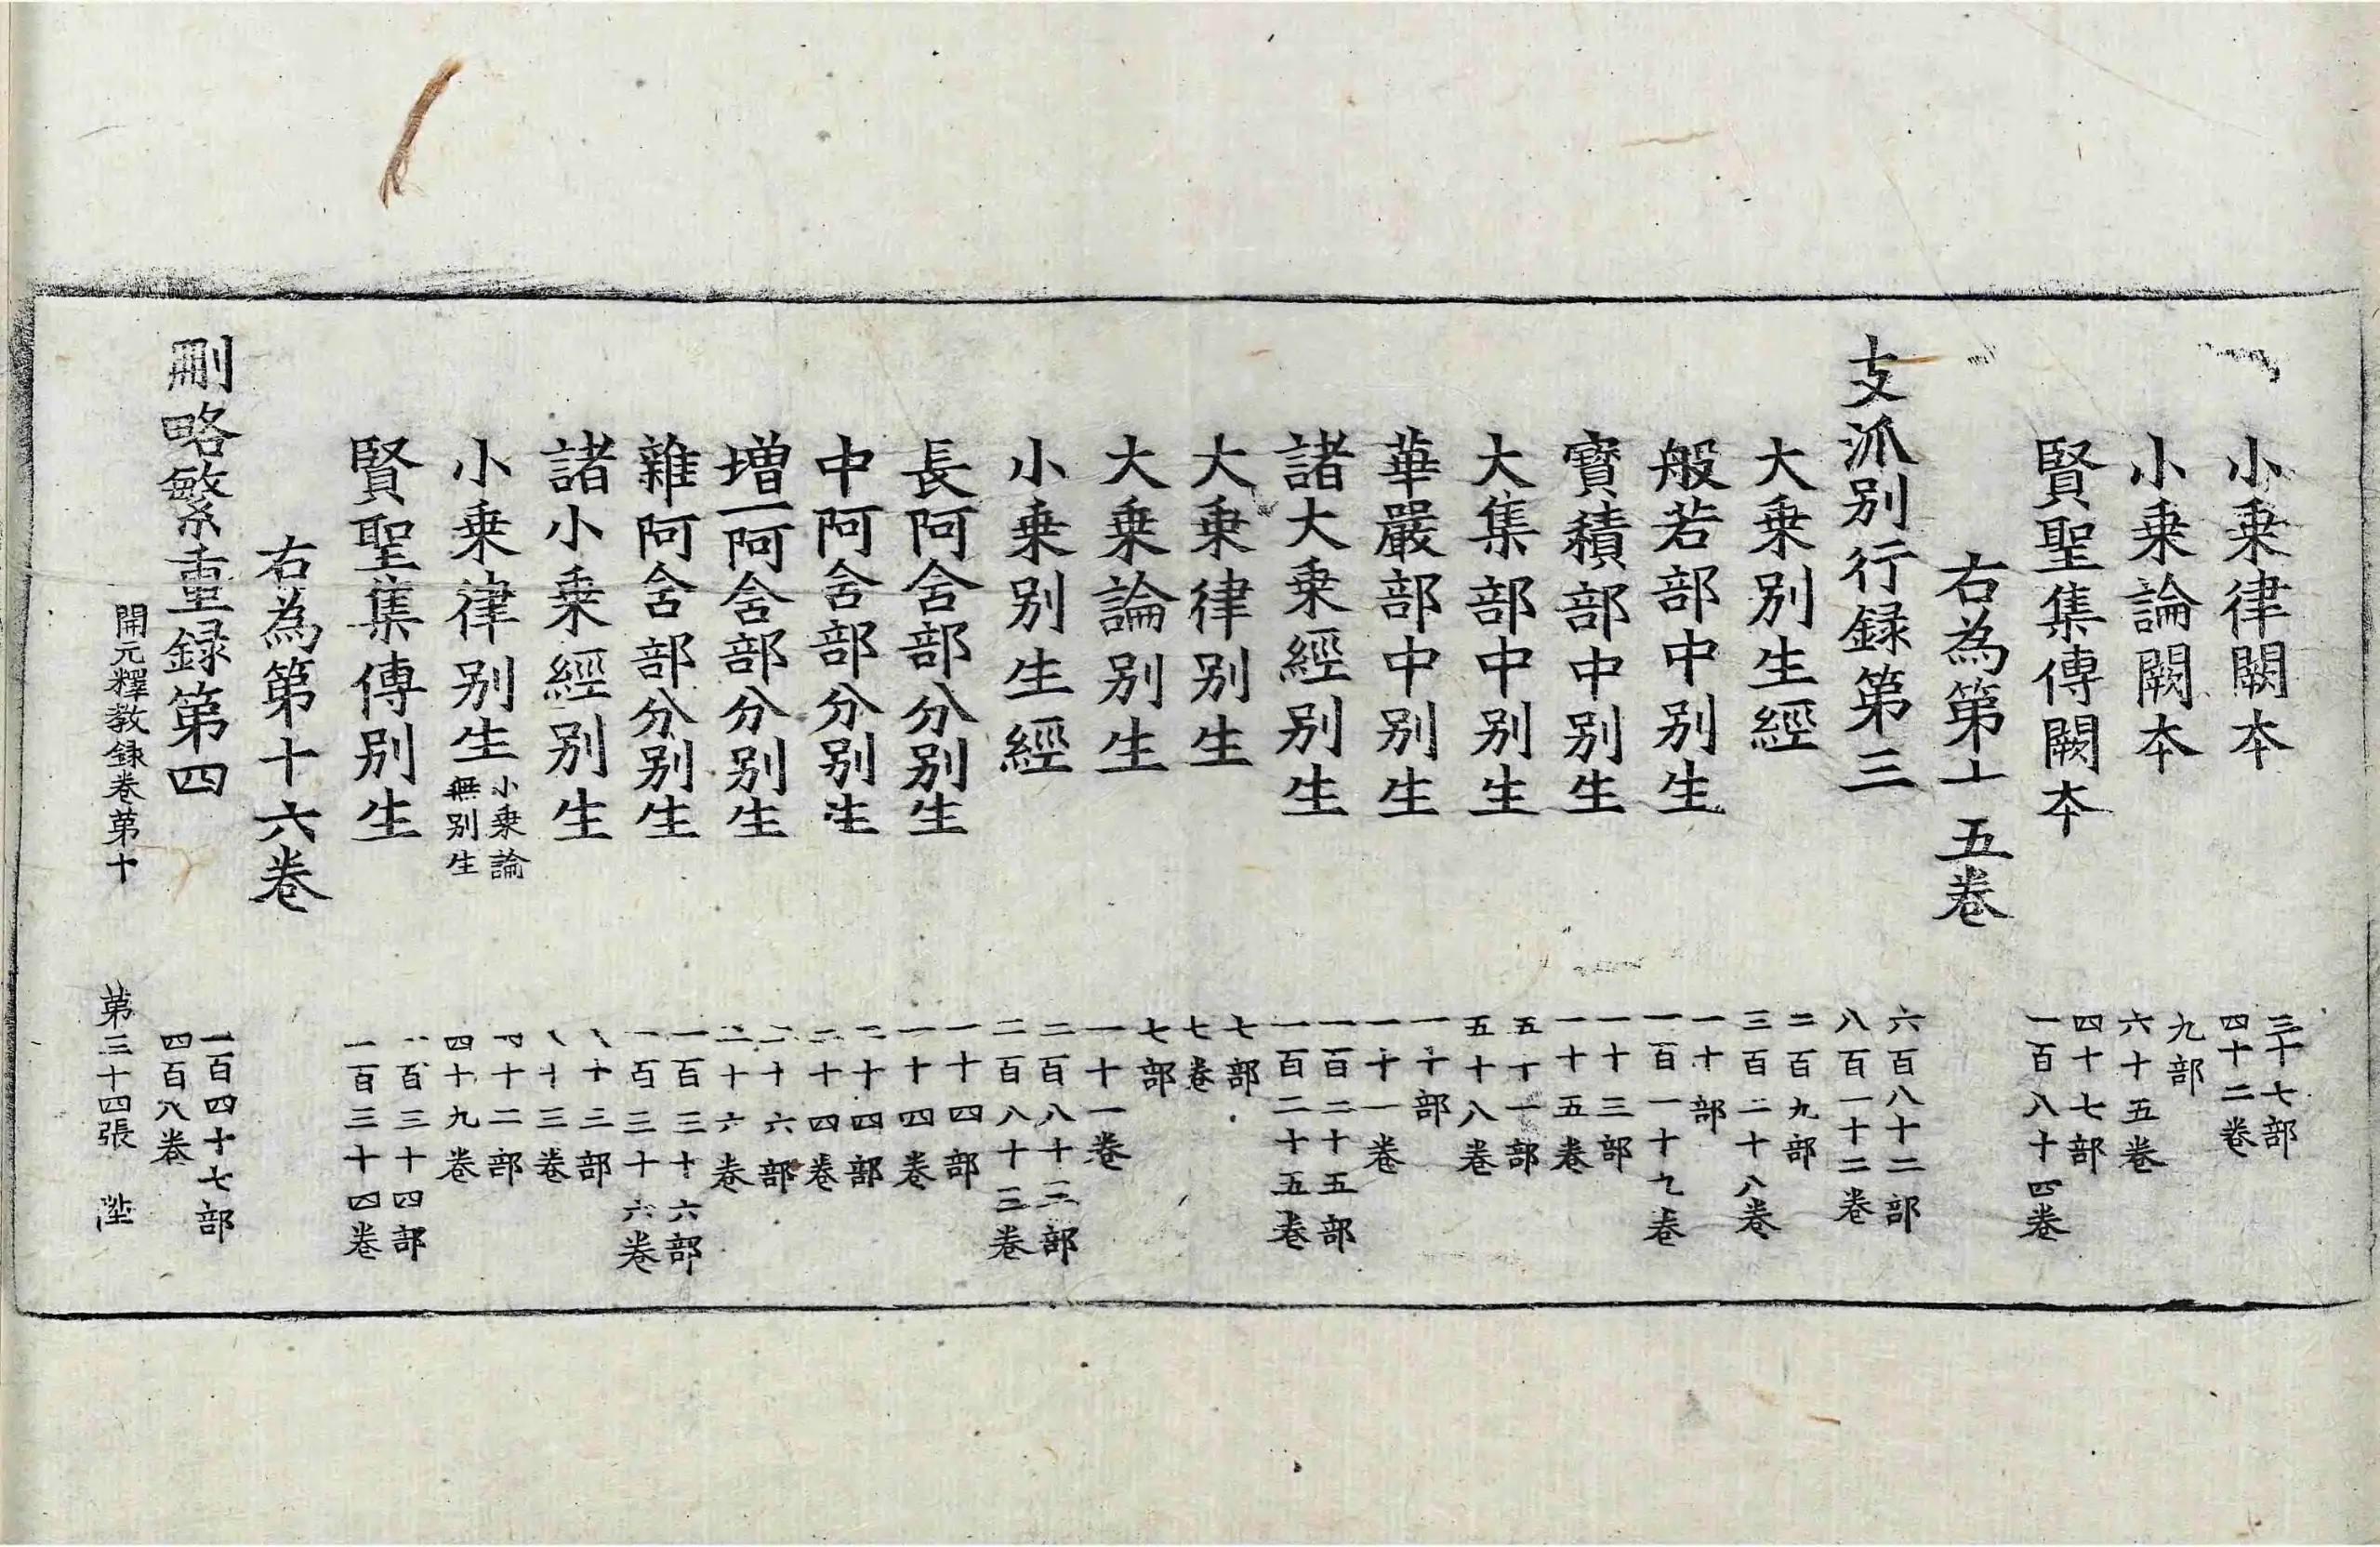 小乗律闕本 三十七部 四十二卷
小乗論闕本 九部 六十五卷
賢聖集傳闕本 四十七部 一百八十四卷
右為第十五卷
支派别行録第三 六百八十二部 八百一十二卷
大乗别生經 二百九部 三百二十八卷
般若部中别生 一十部 一百一十九卷
寳積部中别生 一十三部 一十五卷
大集部中别生 五十一部 五十八卷
華嚴部中别生 一十部 一十一卷
諸大乗經别生 一百二十五部 一百二十五卷
大乗律别生 七部 七卷
大乗論别生 七部 一十一卷
小乗别生經 二百八十三部 二百八十三卷
長阿含部分别生 一十四部 一十四卷
中阿含部分别生 二十四部 二十四卷
増一阿含部分别生 二十六部 二十六卷
雜阿含部分别生 一百三十六部 一百三十六卷
諸小乗經别生 八十三部 八十三卷
小乗律别生 小乗論無别生 四十二部 四十九卷
賢聖集傳别生 一百三十四部 一百三十四卷
右為第十六卷
刪略繁重録第四 一百四十七部 四百八卷
開元釋教録卷第十 第三十四張